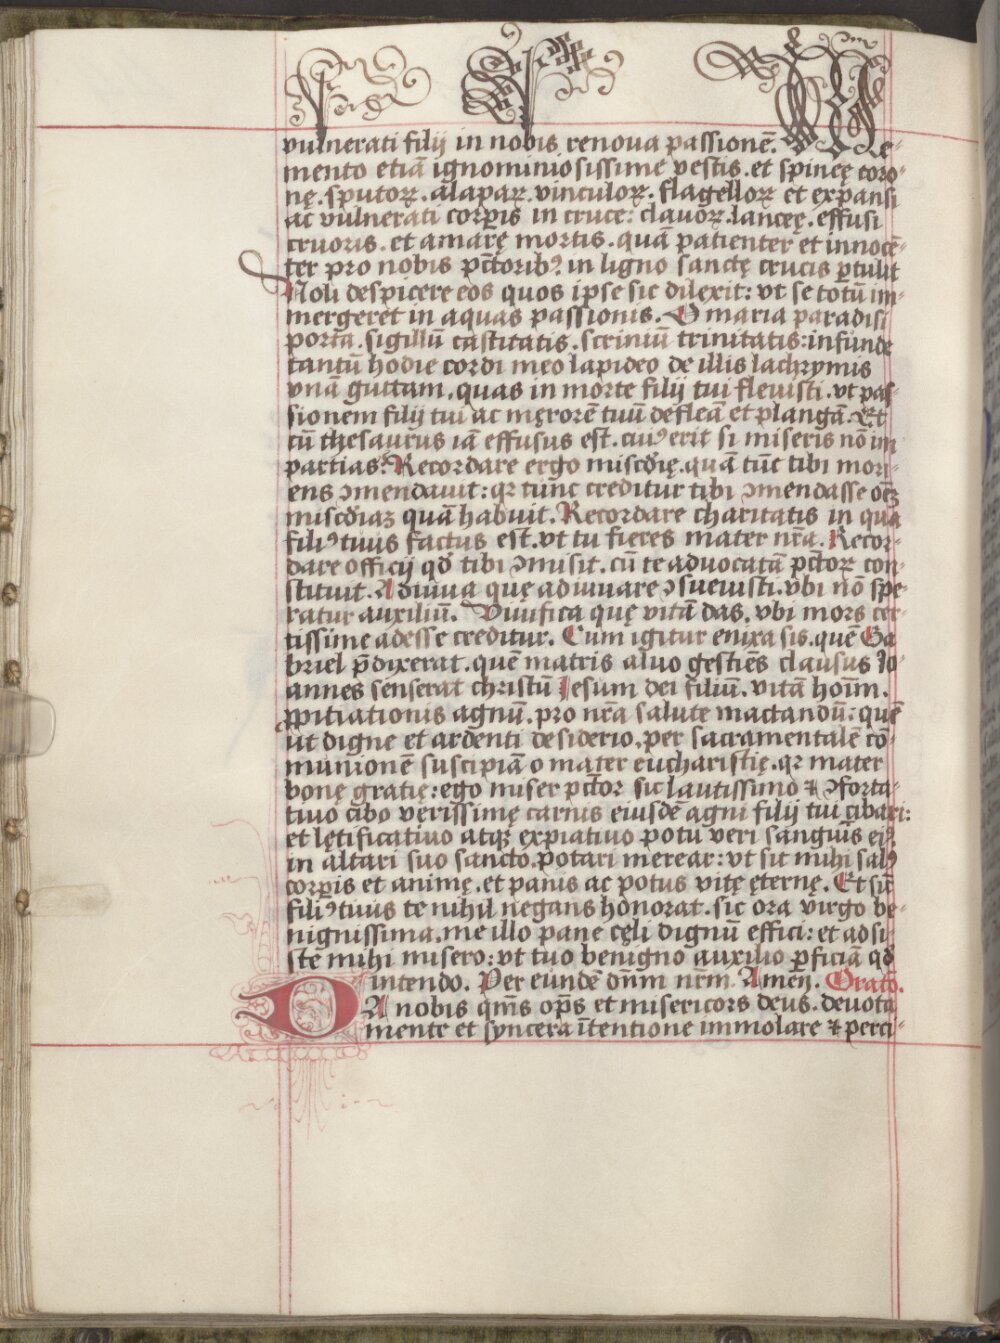 vulnerati filij in nobis renova passionē. Me-
mento etiā ignominiosissime vestis. et spineę coro-
nę. sputoꝝ. alapaꝝ. vinculoꝝ. flagelloꝝ et expansi
ac vulnerati corꝑis in cruce: clavoꝝ. lanceę. effusi
cruoris. et amarę mortis. quā patienter et innocē-
ter pro nobis pctōribꝰ in ligno sanctę crucis ꝑtulit
Noli despicere eos quos ipse sic dilexit: vt se totū im-
mergeret in aquas passionis. O maria paradisi
porta. sigillū castitatis. scriniū trinitatis: infunde
tantū hodie cordi meo lapideo de illis lachrymis
vnā guttam. quas in morte filij tui flevisti. vt pas-
sionem filij tui ac męrorē tuū defleā et plangā. Et
cū thesaurus iā effusus est. cuiꝰ erit si miseris nō im
partias? Recordare ergo miscdię. quā tūc tibi mori-
ens ↄmendavit: qꝛ tunc creditur tibi ↄmendasse oēꝫ
miscdiaꝫ quā habuit. Recordare charitatis in qua
filiꝰ tuus factus est. vt tu fieres mater nrā. Recor-
dare officij qđ tibi ↄmisit. cū te advocatā pctōꝝ con-
stituit. Adiuva quę adiuvare ↄsuevisti. vbi nō spe-
ratur auxiliū. Vivifica quę vitā das. vbi mors cer-
tissime adesse creditur. Cum igitur enixa sis. quē Ga
briel p̄dixerat. quē matris alvo gestiēs clausus Io-
annes senserat christū Iesum dei filiū. vitā hoīm.
ꝓpitiationis agnū. pro nrā salute mactandū: quē
ut digne et ardenti desiderio. per sacramentalē cō-
munionē suscipiā o mater eucharistię. qꝛ mater
bonę gratię: ego miser pctōr sic lautissimo ⁊ ↄforta-
tivo cibo verissimę carnis eiusdē agni filij tui cibari:
et lętificativo atqꝫ expiativo potu veri sanguīs eiꝰ
in altari suo sancto. potari merear: vt sit mihi salꝰ
corꝑis et animę. et panis ac potus vitę ęternę. Et sic̄
filiꝰ tuus te nihil negans honorat. sic ora virgo be-
nignissima. me illo pane cęli dignū effici: et adsi-
stē mihi misero: vt tuo benigno auxilio ꝑficiā qđ
intendo. Per eundē dn̄m nrm̄. Amen. Oratō.
DA nobis qm̄s op̄s et misericors deus. devota
mente et syncera ītentione immolare ⁊ perci-